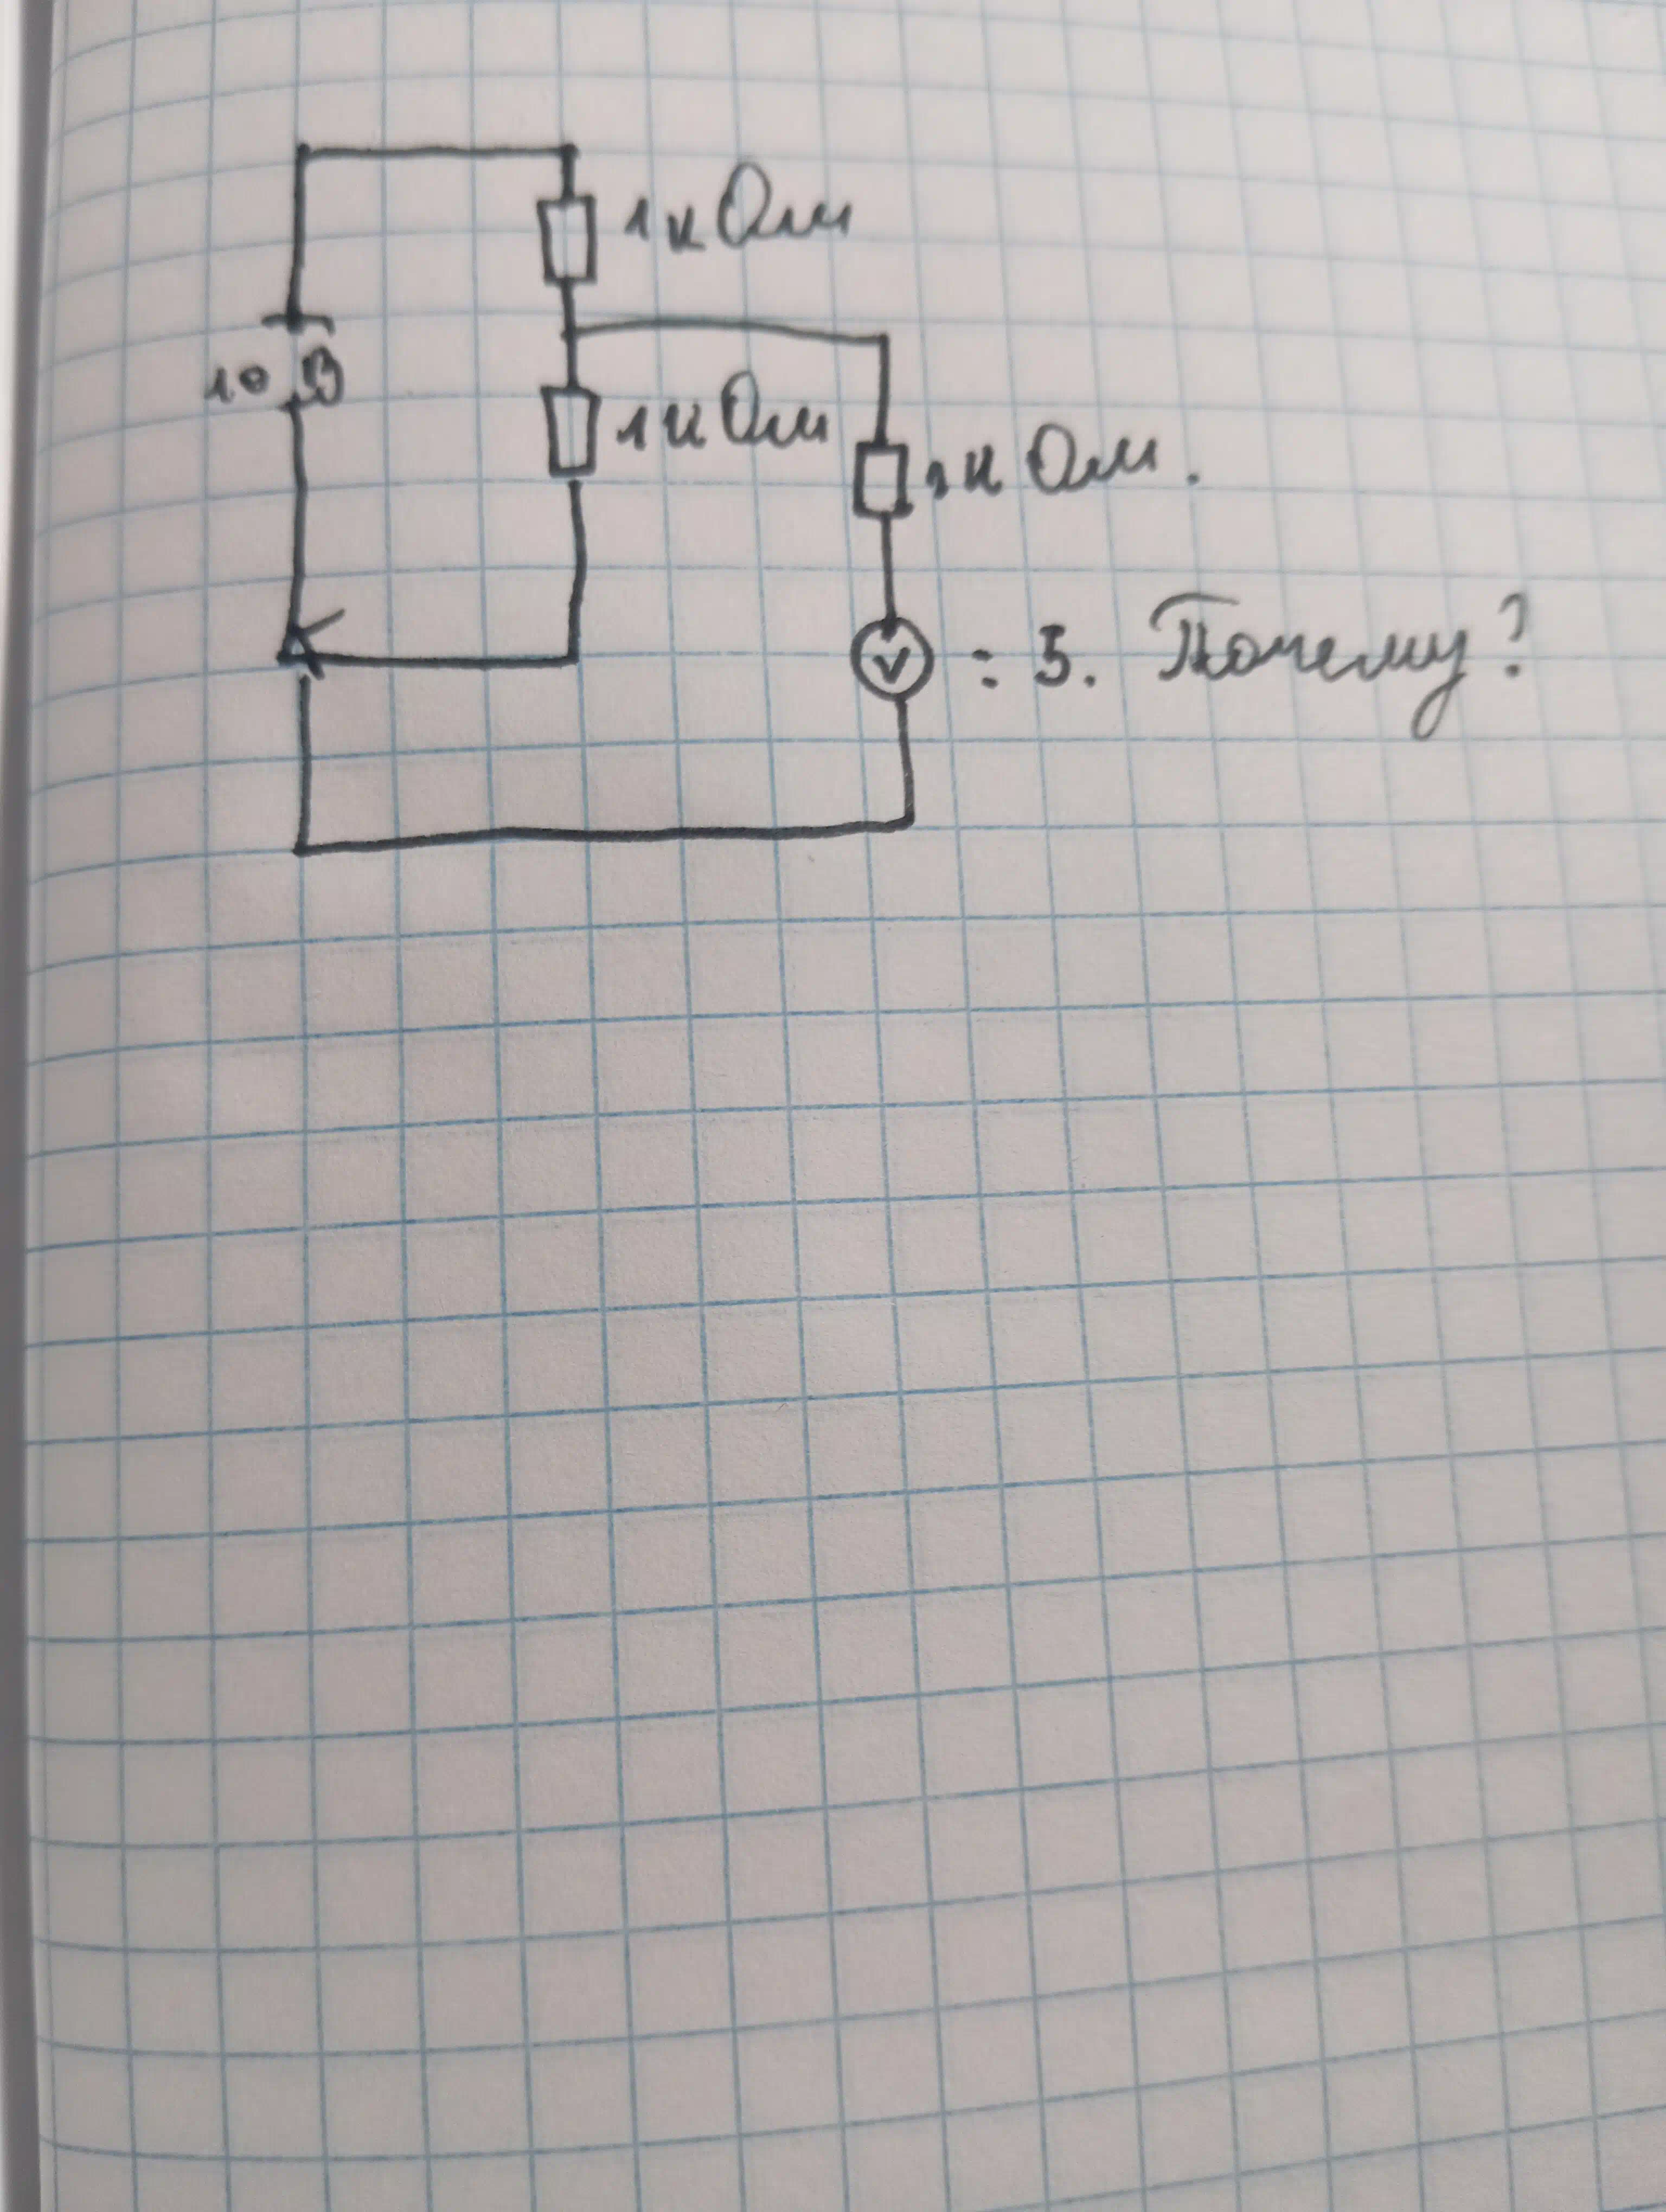 1 кОм
10 В
1 кОм
1 кОм.
V = 5. Почему?